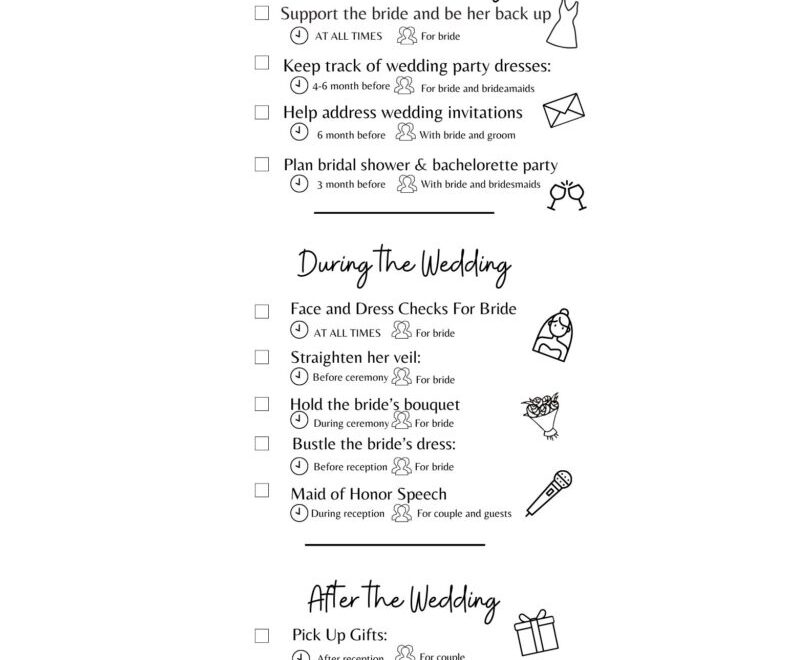 Support the bride and be her back up
AT ALL TIMES For bride
Keep track of wedding party dresses:
4-6 month before For bride and brideamaids
Help address wedding invitations
6 month before With bride and groom
Plan bridal shower & bachelorette party
3 month before With bride and bridesmaids
During the Wedding
Face and Dress Checks For Bride
AT ALL TIMES For bride
Straighten her veil:
Before ceremony For bride
Hold the bride's bouquet
During ceremony For bride
Bustle the bride's dress:
Before reception For bride
Maid of Honor Speech
During reception For couple and guests
After the Wedding
Pick Up Gifts:
After reception For couple